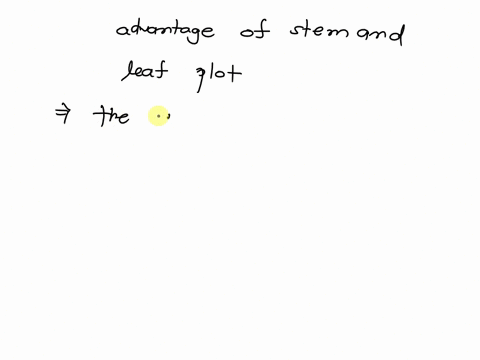 advantage of stem and
leaf plot
⇒ the